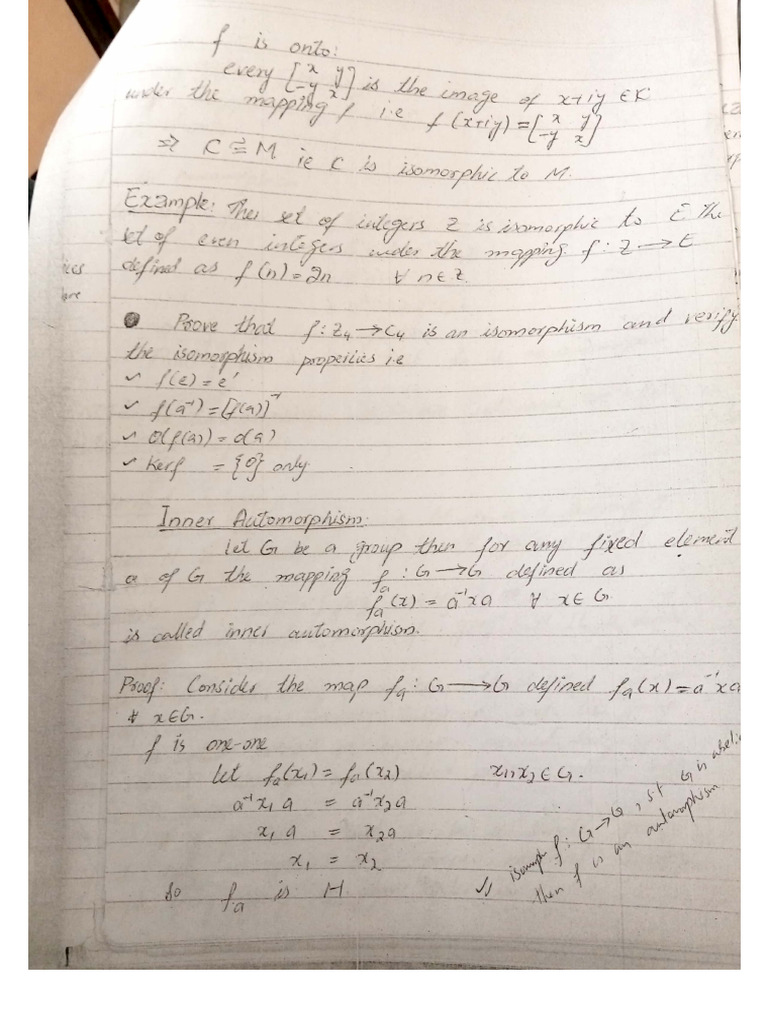 f is onto:
every [x y -y x] is the image of x+iy ∈ ₵
under the mapping f i.e f(x+iy) = [x y -y x]
⇒ ₵ ≅ M ie ₵ is isomorphic to M.
Example: The set of integers Z is isomorphic to E The
set of even integers under the mapping f : Z → E
defined as f(n) = 2n ∀ n ∈ Z.
Prove that f : Z₄ → C₄ is an isomorphism and verify
the isomorphism properties i.e
✓ f(e) = e′
✓ f(a⁻¹) = [f(a)]⁻¹
✓ O(f(a)) = o(a)
✓ Kerf = {0} only.
Inner Automorphism:
let G be a group then for any fixed element
a of G the mapping fₐ : G → G defined as
fₐ(x) = a⁻¹xa ∀ x ∈ G
is called inner automorphism.
Proof: Consider the map fₐ : G → G defined fₐ(x) = a⁻¹xa
∀ x ∈ G.
f is one-one
let fₐ(x₁) = fₐ(x₂) x₁, x₂ ∈ G.
a⁻¹x₁a = a⁻¹x₂a
x₁a = x₂a
x₁ = x₂
so fₐ is 1-1
✓ isomorph f : G → G, s.t G is abeli
then f is an automorphism